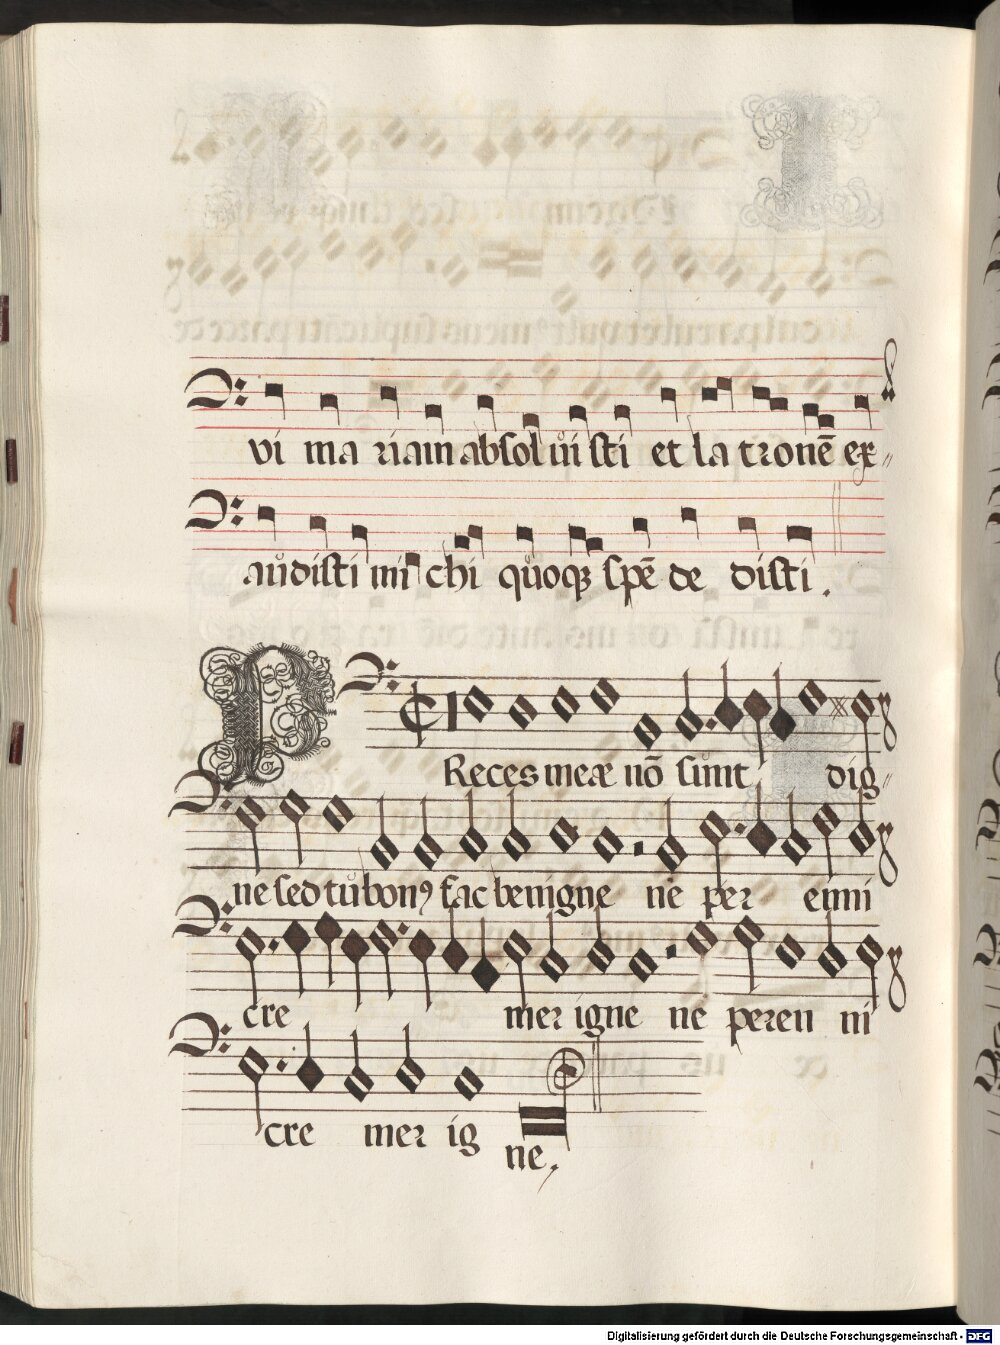 vi ma riam absol vi sti et la tronē ex
audisti mi chi quoqꝫ spē de disti.
Preces meæ nō sunt dig
ne sed tu bonꝰ fac benigne ne per enni
cre mer igne ne peren ni
cre mer ig ne.
Digitalisierung gefördert durch die Deutsche Forschungsgemeinschaft - DFG